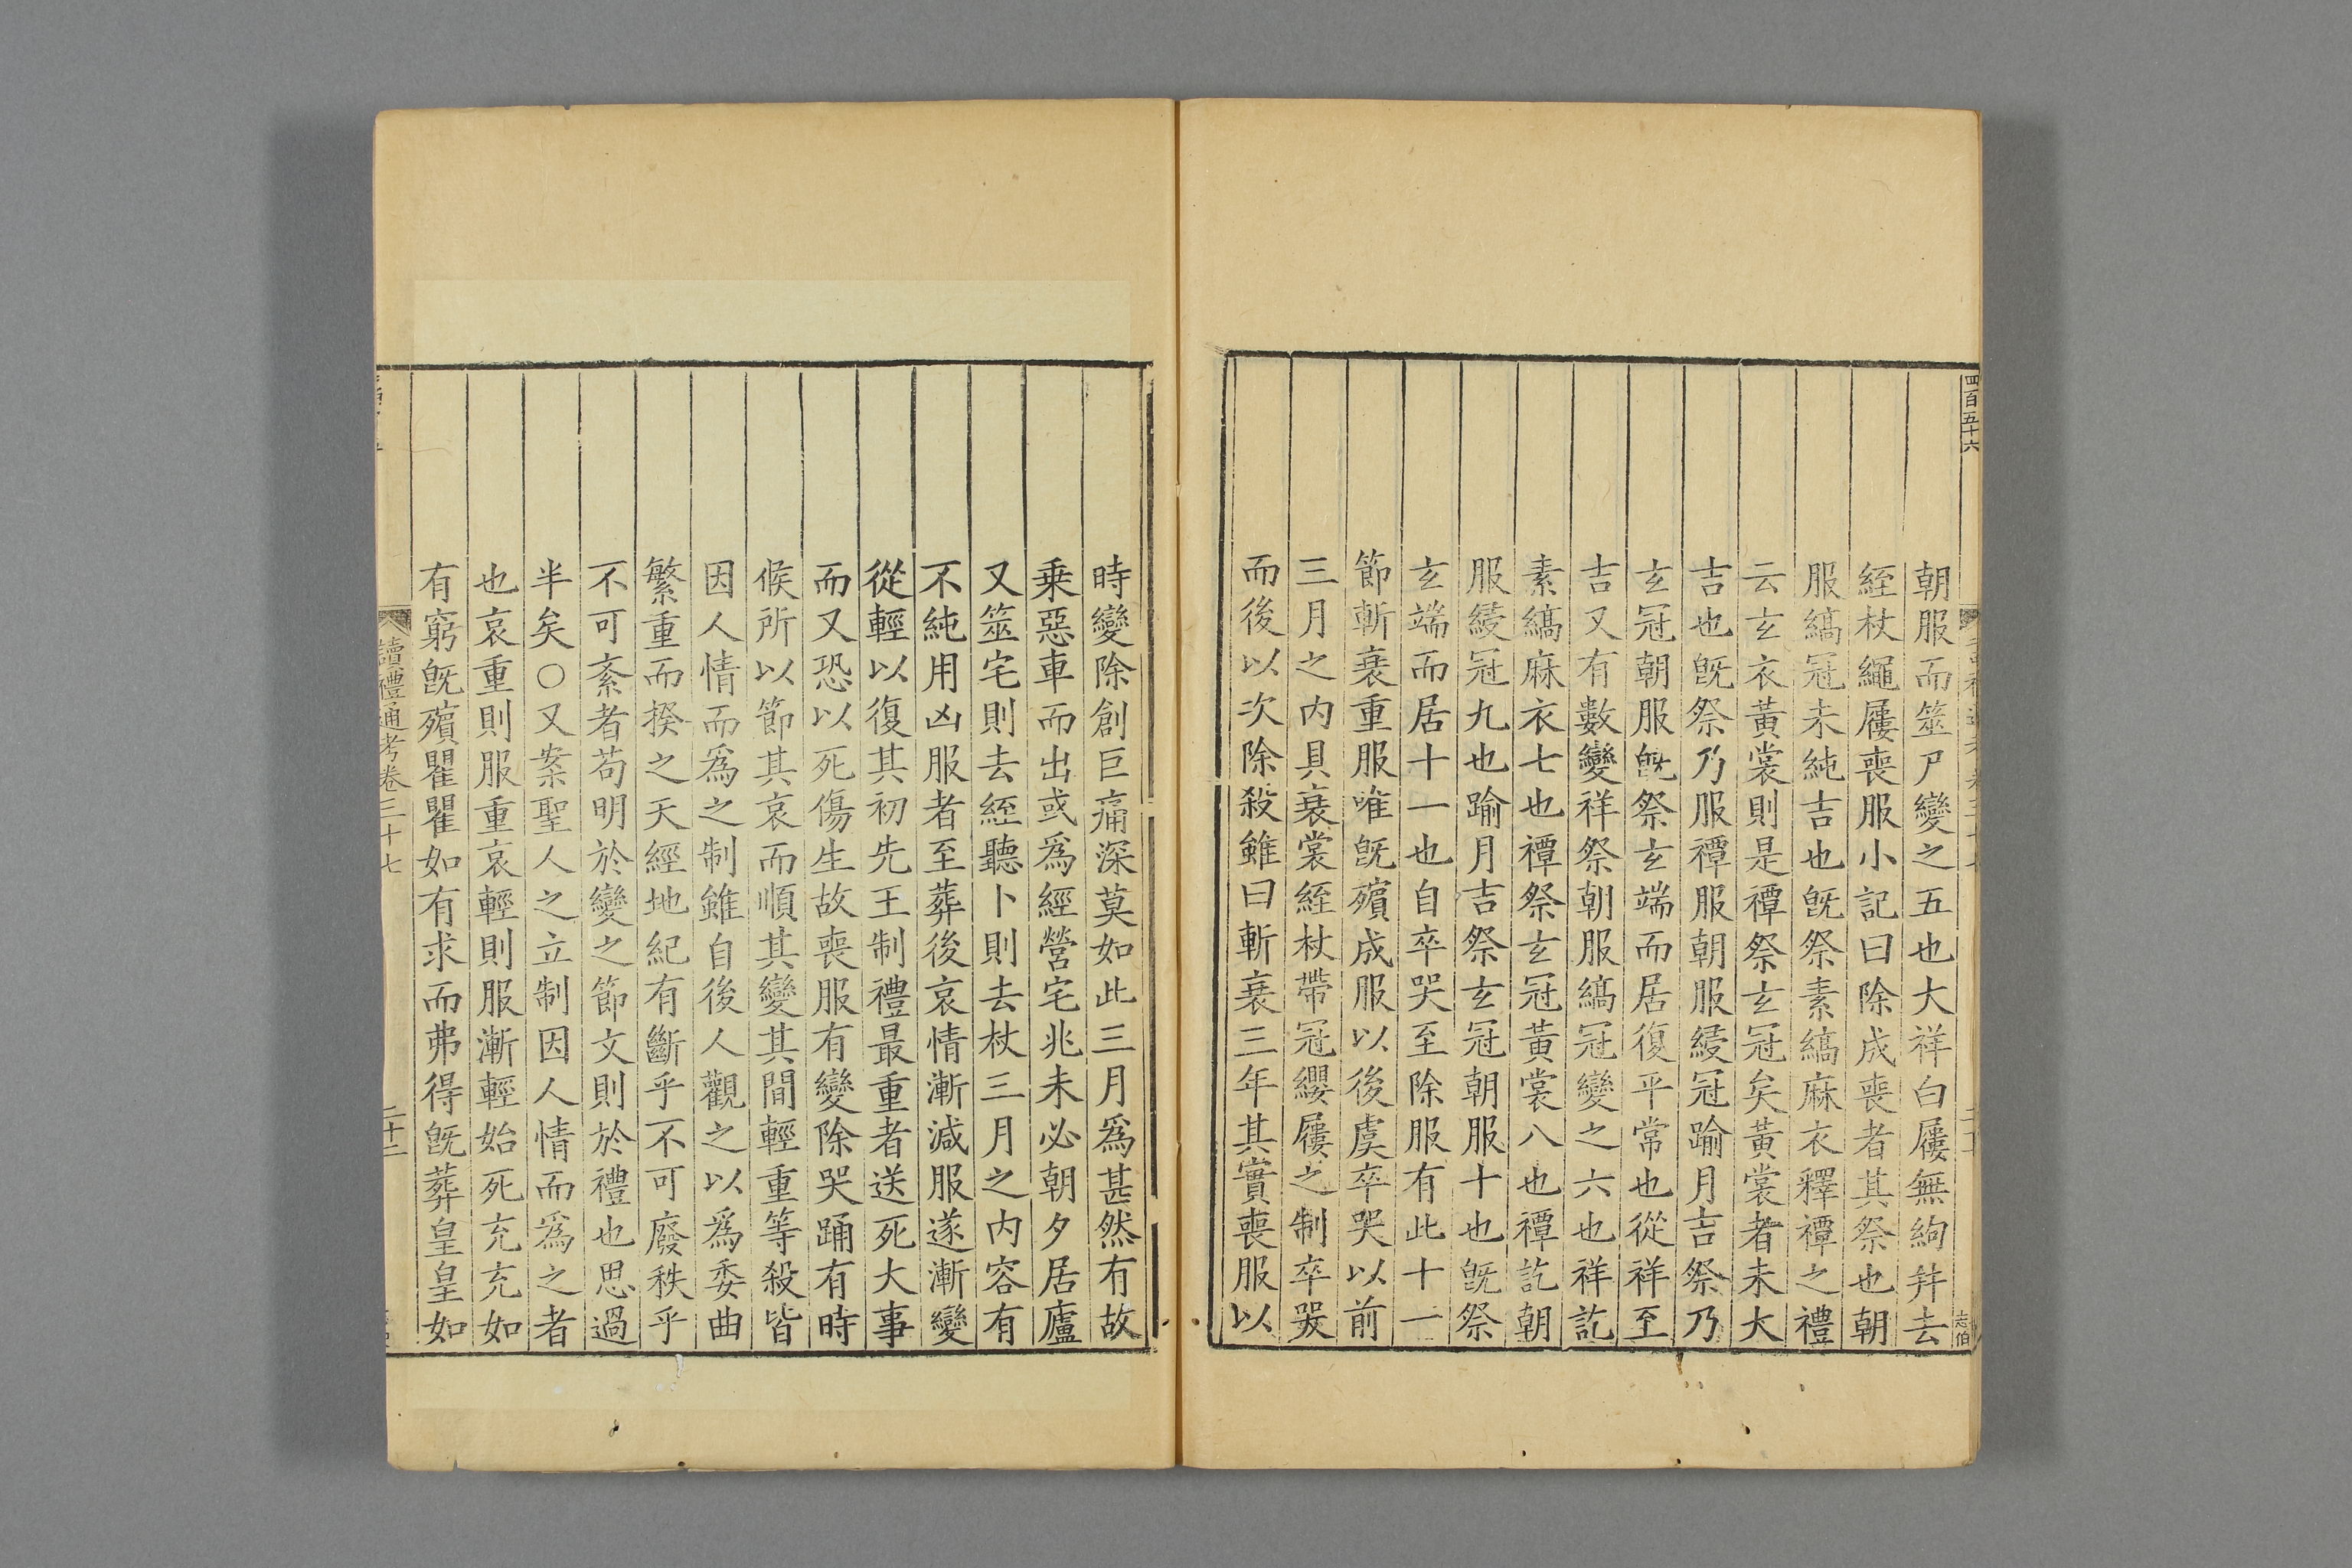 四百五十六
志伯
朝服而筮尸變之五也大祥白屨無絇幷去
絰杖繩屨喪服小記曰除成喪者其祭也朝
服縞冠未純吉也旣祭素縞麻衣釋禫之禮
云玄衣黃裳則是禫祭玄冠矣黃裳者未大
吉也旣祭乃服禫服朝服綅冠踰月吉祭乃
玄冠朝服旣祭玄端而居復平常也從祥至
吉又有數變祥祭朝服縞冠變之六也祥訖
素縞麻衣七也禫祭玄冠黃裳八也禫訖朝
服綅冠九也踰月吉祭玄冠朝服十也旣祭
玄端而居十一也自卒哭至除服有此十一
節斬衰重服唯旣殯成服以後虞卒哭以前
三月之內具衰裳絰杖帶冠纓屨之制卒哭
而後以次除殺雖曰斬衰三年其實喪服以
時變除創巨痛深莫如此三月爲甚然有故
乗惡車而出或爲經營宅兆未必朝夕居廬
又筮宅則去絰聽卜則去杖三月之內容有
不純用凶服者至葬後哀情漸減服遂漸變
從輕以復其初先王制禮最重者送死大事
而又恐以死傷生故喪服有變除哭踊有時
候所以節其哀而順其變其間輕重等殺皆
因人情而爲之制雖自後人觀之以爲委曲
繁重而揆之天經地紀有斷乎不可廢秩乎
不可紊者苟明於變之節文則於禮也思過
半矣○又案聖人之立制因人情而爲之者
也哀重則服重哀輕則服漸輕始死充充如
有窮旣殯瞿瞿如有求而弗得旣葬皇皇如
讀禮通考卷三十七
二十二